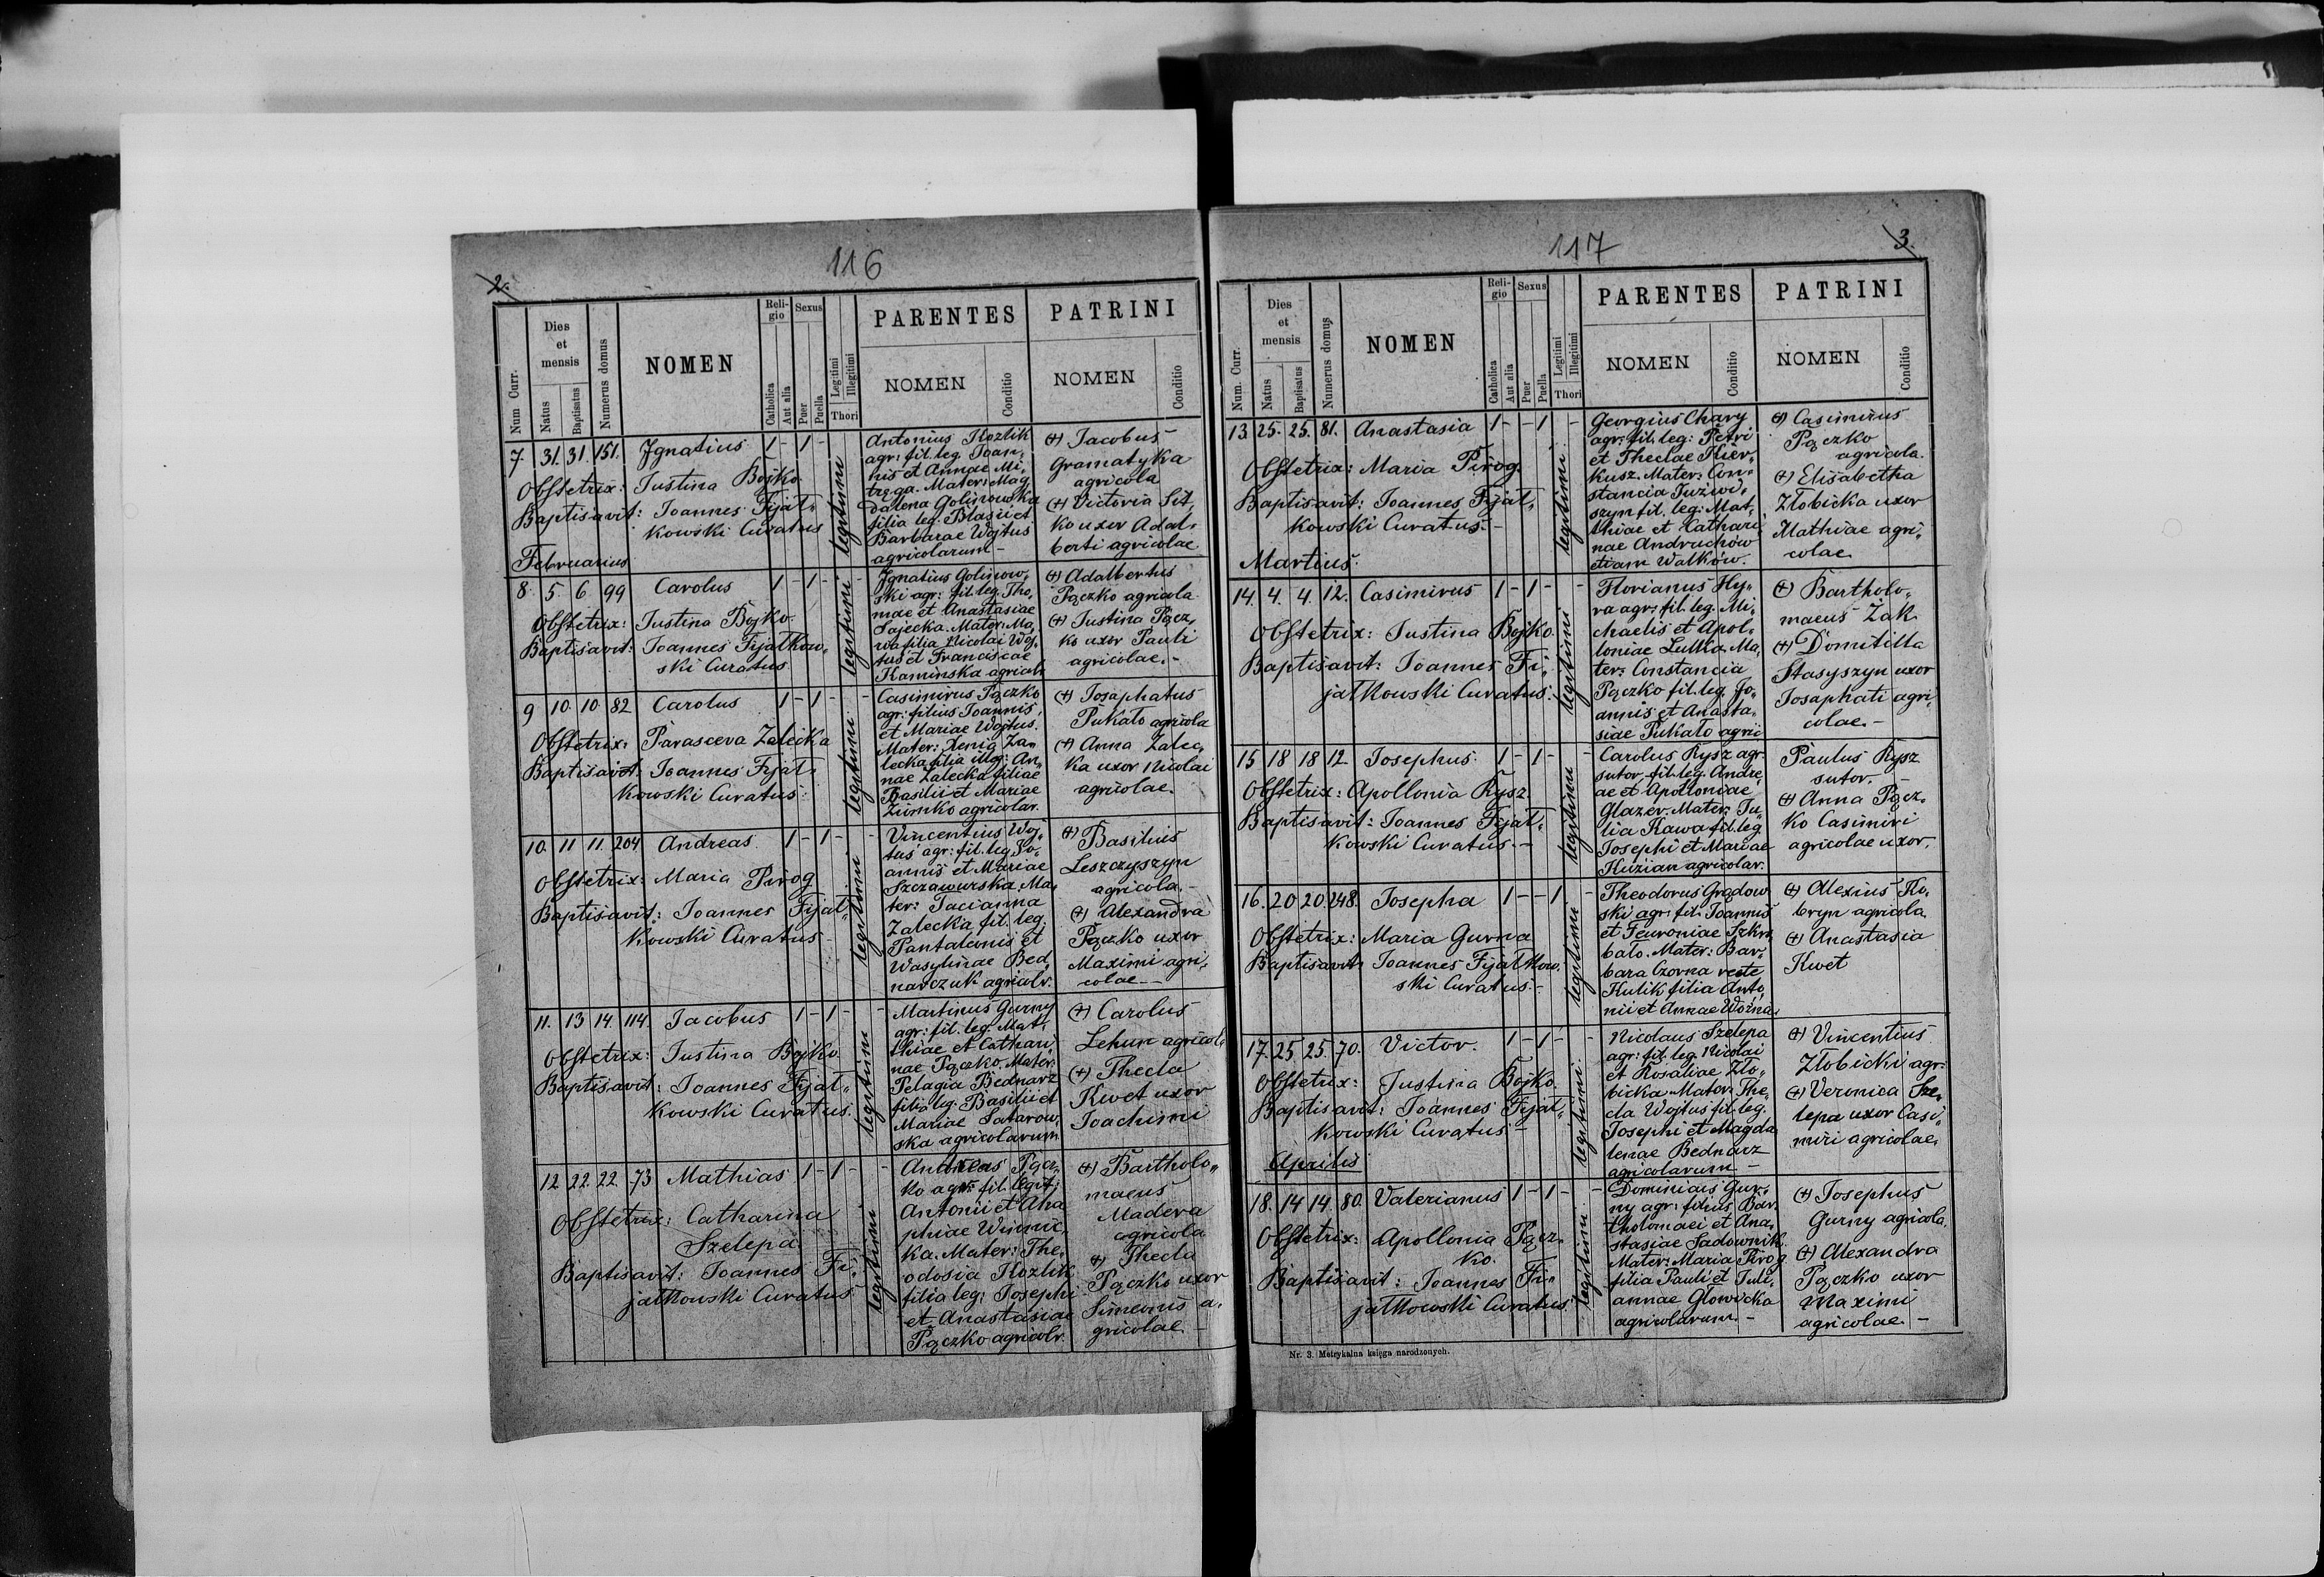 2.
116
Num Curr.
Dies et mensis
Natus
Baptisatus
Numerus domus
NOMEN
Religio
Catholica
Aut alia
Sexus
Puer
Puella
Legitimi
Illegitimi
Thori
PARENTES
NOMEN
Conditio
PATRINI
NOMEN
Conditio
7. 31. 31. 151. Ignatius 1 - 1 -
Obstetrix: Justina Bojko
Baptisavit: Joannes Fijał„
kowski Curatus
legitimi
Antonius Kozlik
agr: fil. leg. Joan„
nis et Annae Mi„
tręga. Mater: Mag
dalena Golinowska
filia leg. Blasii et
Barbarae Wojtus
agricolarum -
(+) Jacobus
Gramatyka
agricola
(+) Victoria Sit„
ko uxor Adal„
berti agricolae
Februarius
8. 5. 6. 99 Carolus 1 - 1 -
Obstetrix: Justina Bojko.
Baptisavit: Joannes Fijałkow„
ski Curatus
legitimi
Ignatius Golinow„
ski agr: fil. leg. Tho„
mae et Anastasiae
Sajecka. Mater: Ma„
wa filia Nicolai Woj„
tus et Franciscae
Kaminska agricolr.
(+) Adalbertus
Pączko agricola
(+) Justina Pącz„
ko uxor Pauli
agricolae. -
9 10. 10. 82 Carolus 1 - 1 - -
Obstetrix: Parasceva Zalecka
Baptisavit: Joannes Fijał„
kowski Curatus.
legitimi
Casimirus Pączko
agr: filius Joannis
et Mariae Wojtus.
Mater: Xenia Za„
lecka filia illeg: An„
nae Zalecka filiae
Basilii et Mariae
Zumko agricolar.
(+) Josaphatus
Pukało agricola
(+) Anna Zalec„
ka uxor Nicolai
agricolae.
10. 11 11. 204 Andreas. 1 - 1 - -
Obstetrix: Maria Pirog
Baptisavit: Joannes Fijał„
kowski Curatus -
legitimi
Vincentius Woj„
tus agr: fil. leg. Jo„
annis et Mariae
Szczawurska. Ma„
ter: Tacianna
Zalecka fil. leg.
Pantaleonis et
Wasylinae Bed„
narczuk agricolr.
(+) Basilius
Leszczyszyn
agricola. -
(+) Alexandra
Pączko uxor
Maximi agri„
colae -
11. 13 14. 114. Jacobus 1 - 1 - -
Obstetrix: Justina Bojko.
Baptisavit: Joannes Fijał„
kowski Curatus.
legitimi
Martinus Gurny
agr: fil. leg. Mat„
thiae et Cathari„
nae Pączko. Mater:
Pelagia Bednarz
filia leg. Basilii et
Mariae Satarow„
ska agricolarum
(+) Carolus
Lehun agricol.
(+) Thecla
Kwet uxor
Joachimi
12 22. 22. 73 Mathias 1 - 1 - -
Obstetrix: Catharina
Szelepa.
Baptisavit: Joannes Fi„
jałkowski Curatus
legitimi
Andreas Pącz„
ko agr: fil. legit:
Antonii et Aha
phiae Winnic„
ka. Mater: The„
odosia Kozlik
filia leg: Josephi
et Anastasiae
Pączko agricolr.
(+) Bartholo„
maeus
Madera
agricola
(+) Thecla
Pączko uxor
Simeonis a„
gricolae. -
117
3.
Num. Curr.
Dies et mensis
Natus
Baptisatus
Numerus domus
NOMEN
Religio
Catholica
Aut alia
Sexus
Puer
Puella
Legitimi
Illegitimi
Thori
PARENTES
NOMEN
Conditio
PATRINI
NOMEN
Conditio
13. 25. 25. 81. Anastasia 1 - - 1 -
Obstetrix: Maria Pirog.
Baptisavit: Joannes Fijał„
kowski Curatus. -
legitimi
Georgius Chary
agr: fil. leg: Petri
et Theclae Kier„
kusz. Mater: Con„
stancia Juzwi„
szyn fil. leg: Mat„
thiae et Cathari„
nae Andruchów
etiam Walków.
(+) Casimirus
Pączko
agricola.
(+) Elisabetha
Złobicka uxor
Mathiae agri„
colae
Martius.
14. 4. 4. 12. Casimirus 1 - 1 - -
Obstetrix: Justina Bojko.
Baptisavit: Joannes Fi„
jałkowski Curatus.
legitimi
Florianus Hy„
ra agr: fil. leg. Mi„
chaelis et Apol„
loniae Lutka. Ma„
ter: Constancia
Pączko fil. leg. Jo„
annis et Anasta„
siae Pukało agric
(+) Bartholo„
maeus Zak
(+) Domitilla
Stasyszyn uxor
Josaphati agri„
colae. -
15 18 18 12 Josephus. 1 - 1 - -
Obstetrix: Apollonia Rysz.
Baptisavit: Joannes Fijał„
kowski Curatus. -
legitimi
Carolus Rysz agr.
sutor, fil. leg. Andre„
ae et Apolloniae
Glazer. Mater: Ju„
lia Kawa fil. leg
Josephi et Mariae
Kuzian agricolar.
Paulus Rysz
sutor. -
(+) Anna Pącz„
ko Casimiri
agricolae uxor.
16. 20 20 248. Josepha 1 - - 1 -
Obstetrix: Maria Gurna
Baptisavit: Joannes Fijałkow„
ski Curatus. -
legitimi
Theodorus Grądow
ski agr: fil. Joannis
et Feuroniae Szkra„
bało. Mater: Bar„
bara Czorna recte
Kulik filia Anto„
nii et Annae Wozna
(+) Alexius Ko„
bryn agricola.
(+) Anastasia
Kwet
17. 25 25. 70. Victor. 1 - 1 - -
Obstetrix: Justina Bojko.
Baptisavit: Joannes Fijał„
kowski Curatus -
legitimi
Nicolaus Szelepa
agr: fil. leg. Nicolai
et Rosaliae Zło„
bicka. Mater: The„
cla Wojtus fil. leg.
Josephi et Magda
lenae Bednarz
agricolarum -
(+) Vincentius
Złobicki agr:
(+) Veronica Sze„
lepa uxor Casi„
miri agricolae.
Aprilis
18. 14 14. 80. Valerianus 1 - 1 - -
Obstetrix: Apollonia Pącz„
ko.
Baptisavit: Joannes Fi„
jałkowski Curatus.
legitimi
Dominicus Gur„
ny agr: filius Bar„
tholomaei et Ana„
stasiae Sadownik.
Mater: Maria Pirog
filia Pauli et Juli„
annae Głowicka
agricolarum. -
(+) Josephus
Gurny agricola.
(+) Alexandra
Pączko uxor
Maximi
agricolae. -
Nr. 3. Metrykalna księga narodzonych.